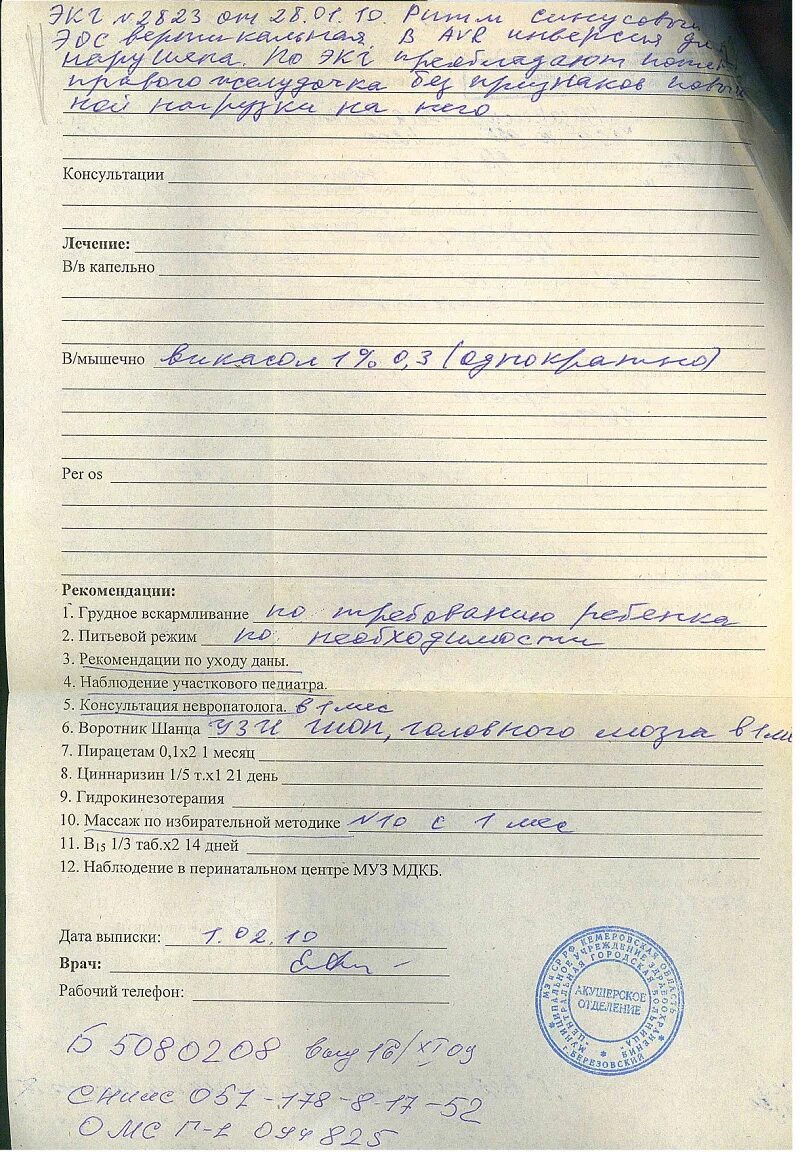 ЭКГ N 2823 от 28.01.10. Ритм синусовый
ЭОС вертикальная. В AVR инверсия
нарушена. По ЭКГ преобладают
правого желудочка без признаков
ной нагрузки на него
Консультации
Лечение:
В/в капельно
В/мышечно викасол 1% 0,3 (однократно)
Per os
Рекомендации:
1. Грудное вскармливание по требованию ребенка
2. Питьевой режим по необходимости
3. Рекомендации по уходу даны.
4. Наблюдение участкового педиатра.
5. Консультация невропатолога. в 1 мес
6. Воротник Шанца УЗИ ШОП, головного мозга в 1 ме
7. Пирацетам 0,1х2 1 месяц
8. Циннаризин 1/5 т.х1 21 день
9. Гидрокинезотерапия
10. Массаж по избирательной методике N10 с 1 мес
11. В15 1/3 таб.х2 14 дней
12. Наблюдение в перинатальном центре МУЗ МДКБ.
Дата выписки: 1.02.10
Врач:
Рабочий телефон:
МЗ и СР РФ КЕМЕРОВСКАЯ ОБЛАСТЬ
МУНИЦИПАЛЬНОЕ УЧРЕЖДЕНИЕ ЗДРАВООХРАНЕНИЯ
"ЦЕНТРАЛЬНАЯ ГОРОДСКАЯ БОЛЬНИЦА"
г. БЕРЕЗОВСКИЙ
АКУШЕРСКОЕ
ОТДЕЛЕНИЕ
Б 5080208 16/XI 09
СНИЛС 057-178-8-17-52
ОМС П-1 044825